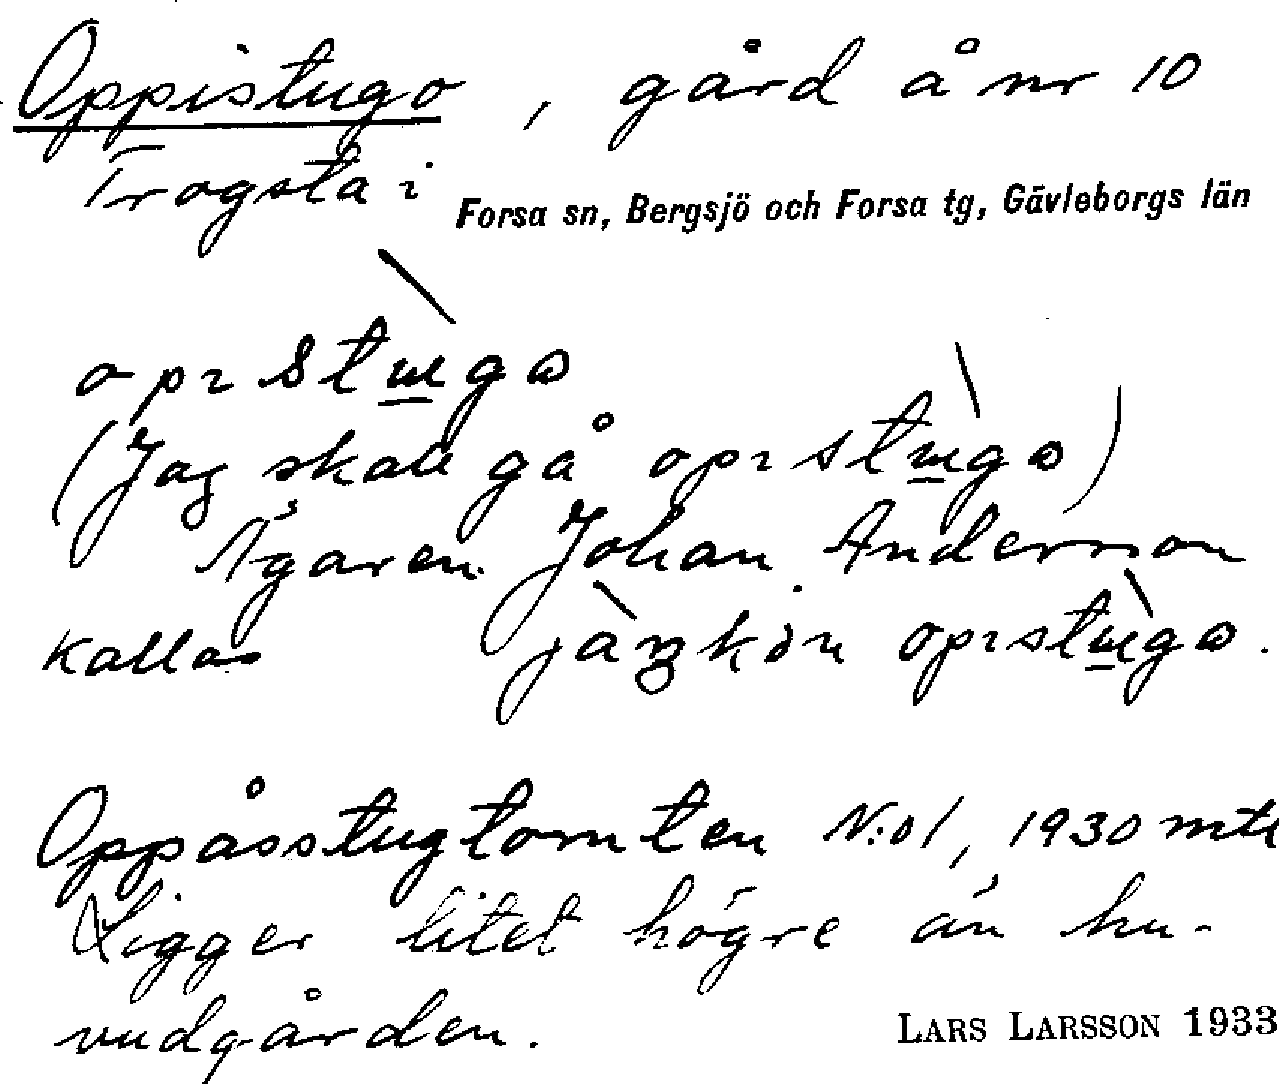 Oppistugo, gård å nr 10
Trogsta i Forsa sn, Bergsjö och Forsa tg, Gävleborgs län
(Jag skall gå
Ägaren Johan Andersson
kallas
Oppåstugtomten N:o 1, 1930 mtl
Ligger litet högre än hu-
vudgården.
LARS LARSSON 1933